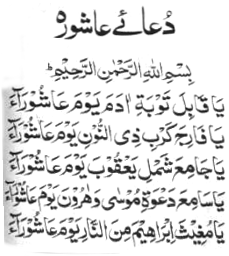 دُعائے عاشورہ
بِسْمِ اللهِ الرَّحْمٰنِ الرَّحِيْمِ ط
يَا قَابِلَ تَوْبَةِ اٰدَمَ يَوْمَ عَاشُوْرَآءَ
يَا فَارِجَ كَرْبِ ذِی النُّوْنِ يَوْمَ عَاشُوْرَآءَ
يَا جَامِعَ شَمْلِ يَعْقُوْبَ يَوْمَ عَاشُوْرَآءَ
يَا سَامِعَ دَعْوَةِ مُوْسٰی وَهٰرُوْنَ يَوْمَ عَاشُوْرَآءَ
يَا مُغِيْثَ اِبْرَاهِيْمَ مِنَ النَّارِ يَوْمَ عَاشُوْرَآءَ